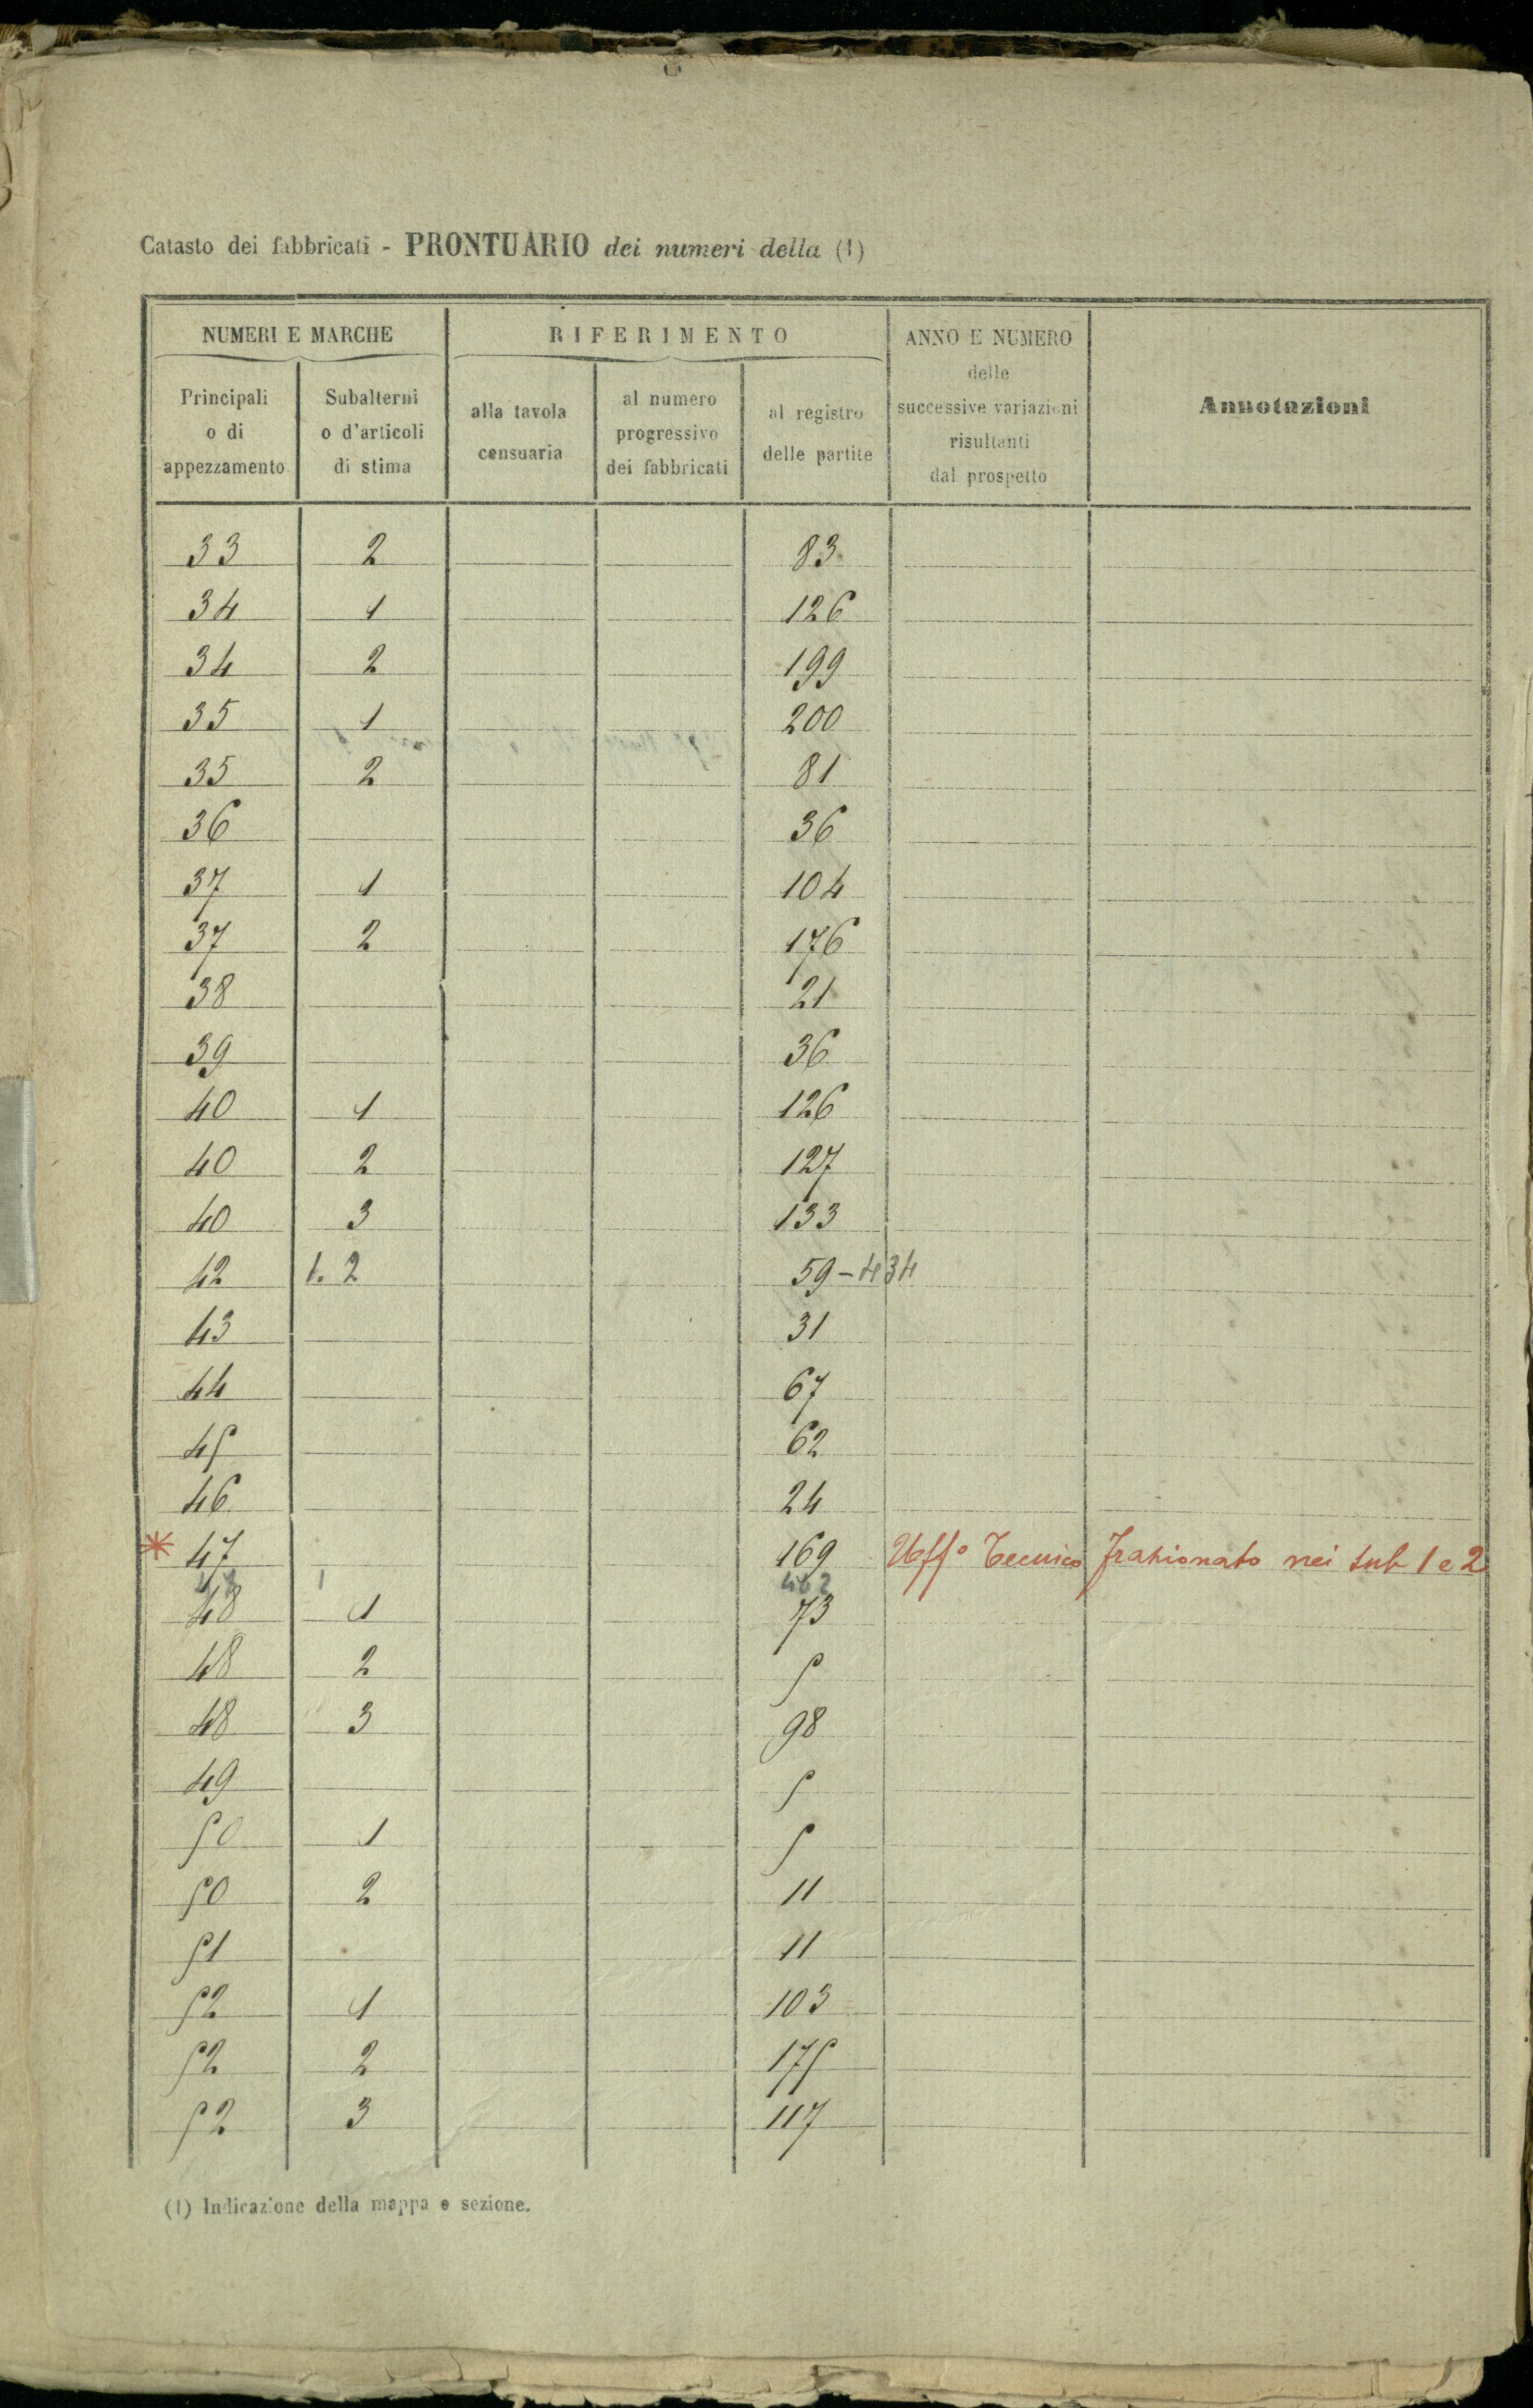 Catasto dei fabbricati - PRONTUARIO dei numeri della (1)
NUMERI E MARCHE
RIFERIMENTO
ANNO E NUMERO
delle
successive variazioni
risultanti
dal prospetto
Annotazioni
Principali
o di
appezzamento
Subalterni
o d'articoli
di stima
alla tavola
censuaria
al numero
progressivo
dei fabbricati
al registro
delle partite
33 2 83
34 1 126
34 2 199
35 1 200
35 2 81
36 36
37 1 104
37 2 176
38 21
39 36
40 1 126
40 2 127
40 3 133
42 1. 2 59 - 434
43 31
44 67
45 62
46 24
* 47 169 Uffº Tecnico Frazionato nei sub 1 e 2
1 462
48 1 73
48 2 5
48 3 98
49 5
50 1 5
50 2 11
51 11
52 1 103
52 2 175
52 3 117
(1) Indicazione della mappa e sezione.